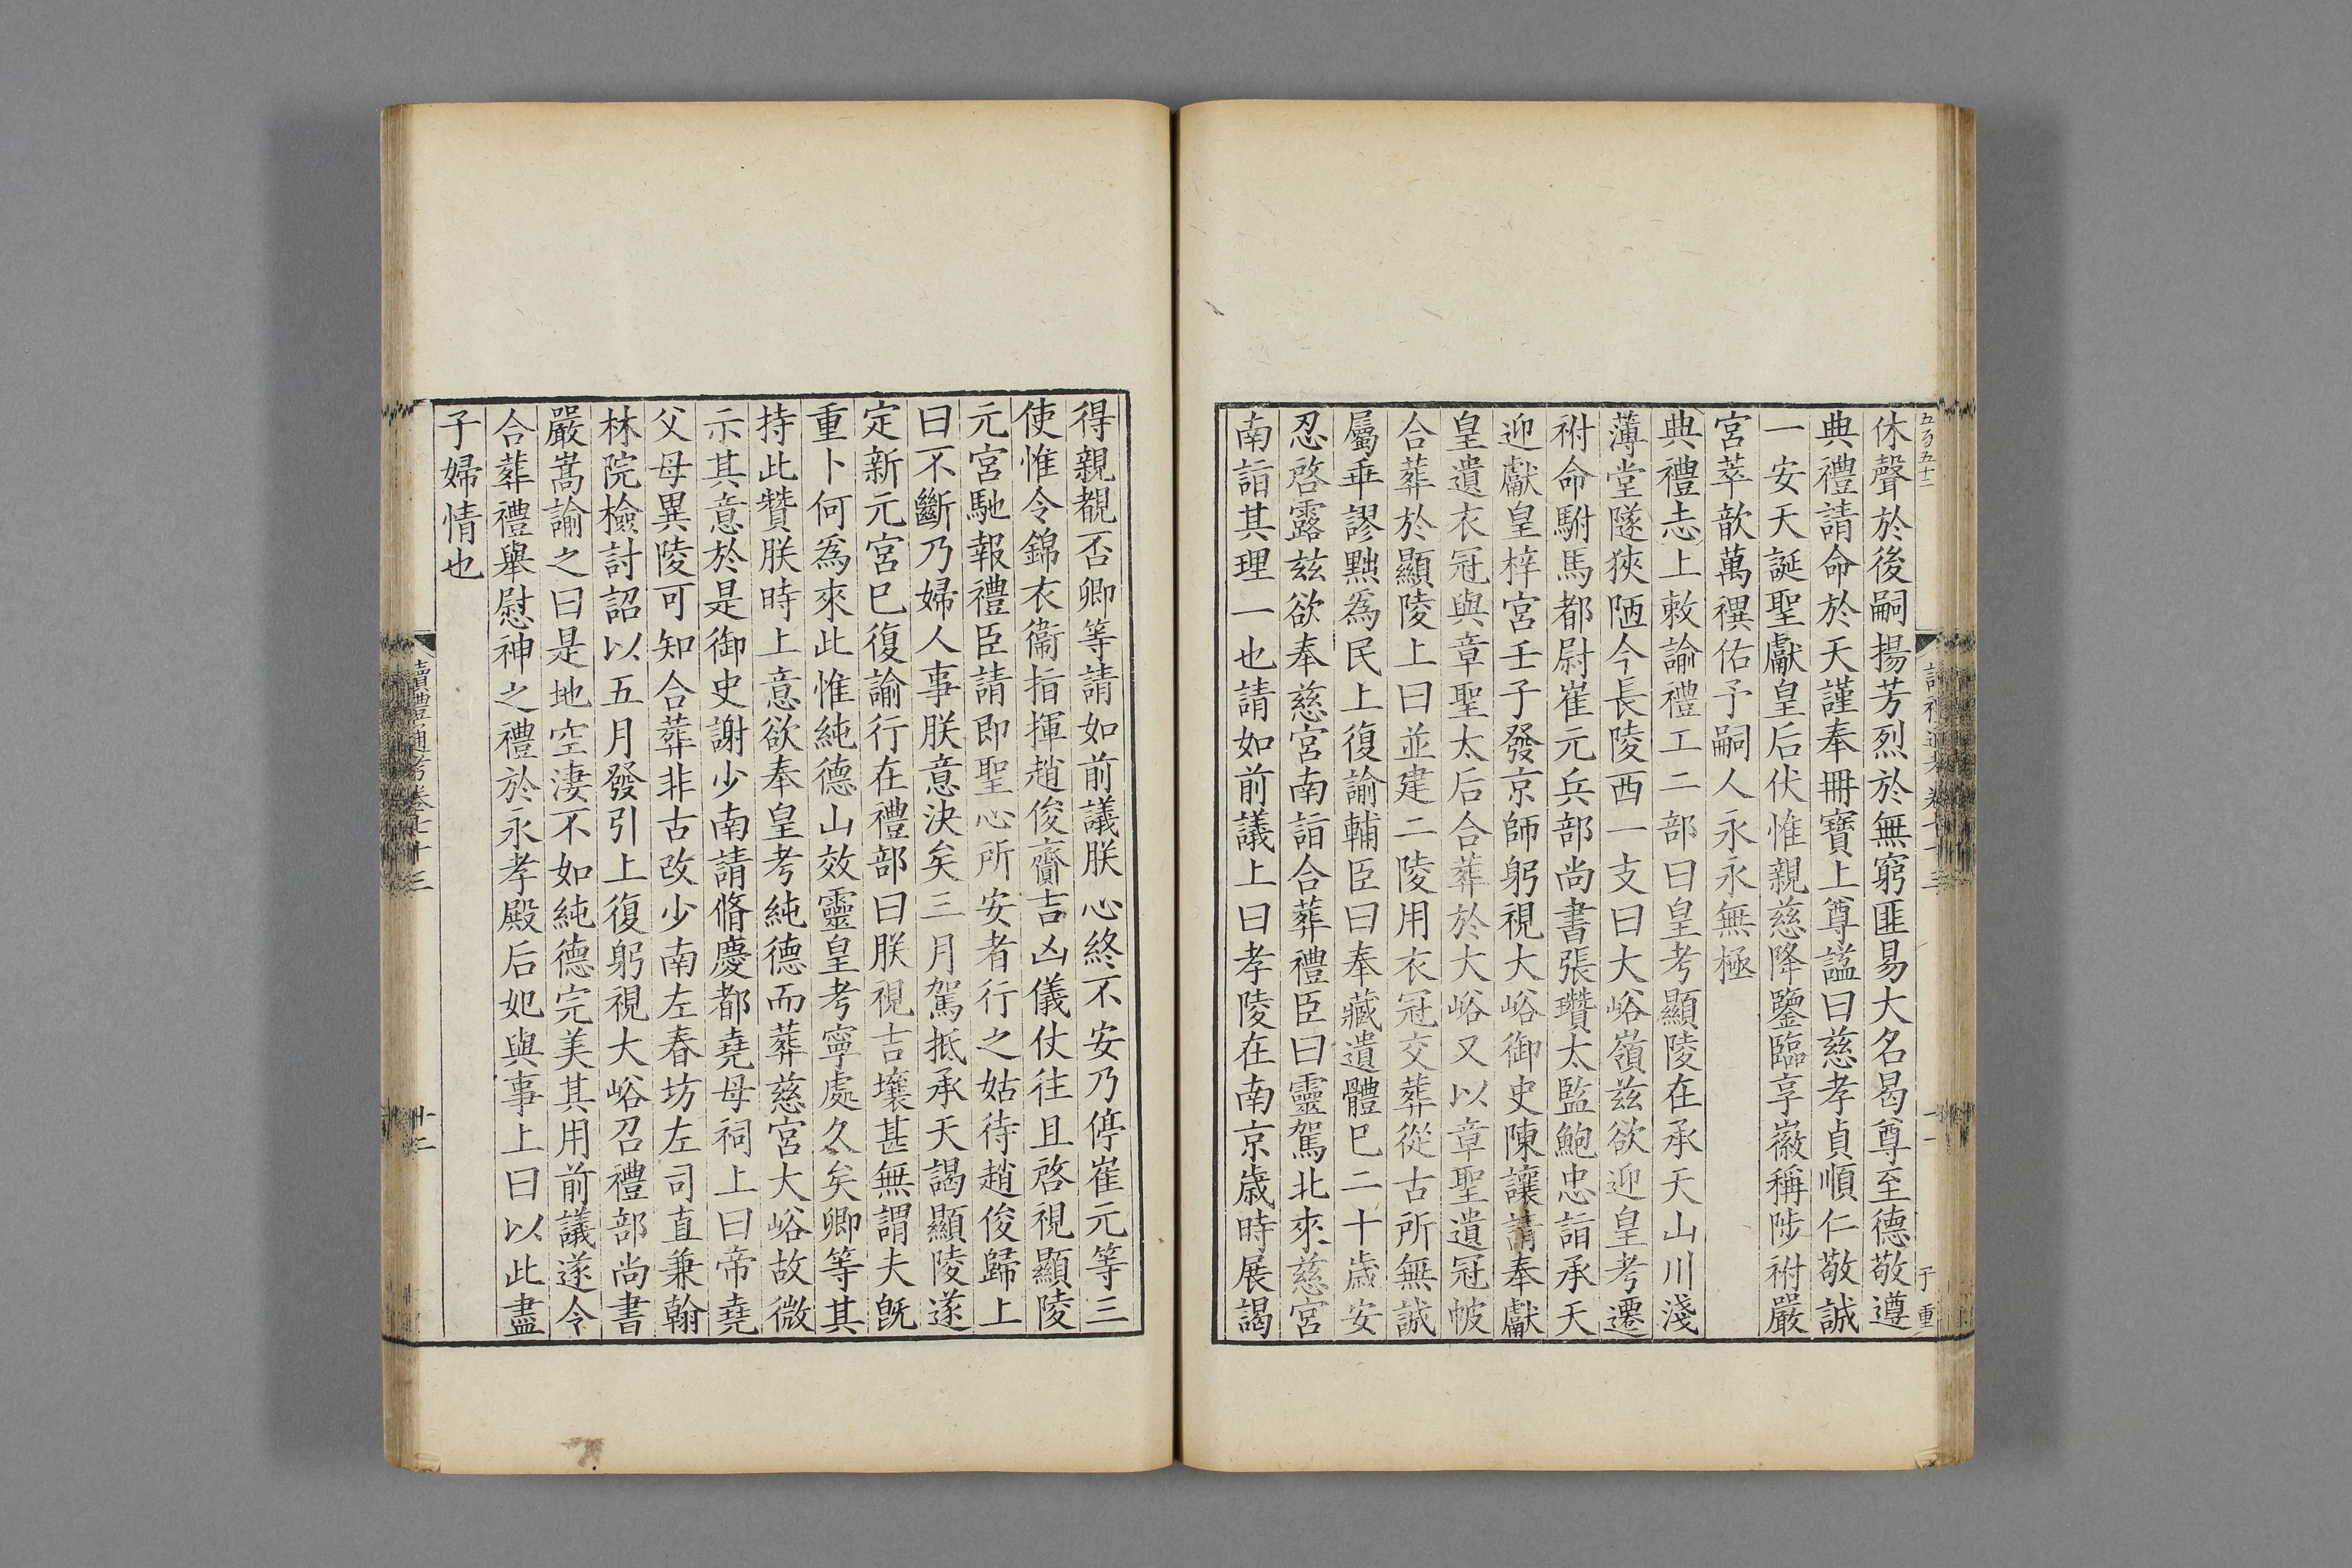 五百五十二
休聲於後嗣揚芳烈於無窮匪易大名曷尊至德敬遵
典禮請命於天謹奉冊寶上尊諡曰慈孝貞順仁敬誠
一安天誕聖獻皇后伏惟親慈降鑒臨享徽稱陟祔嚴
宮萃歆萬禩佑予嗣人永永無極
典禮志上敕諭禮工二部曰皇考顯陵在承天山川淺
薄堂隧狹陋今長陵西一支曰大峪嶺兹欲迎皇考遷
祔命駙馬都尉崔元兵部尚書張瓚太監鮑忠詣承天
迎獻皇梓宮壬子發京師躬視大峪御史陳讓請奉獻
皇遺衣冠與章聖太后合葬於大峪又以章聖遺冠帔
合葬於顯陵上曰並建二陵用衣冠交葬從古所無誠
屬乖謬黜爲民上復諭輔臣曰奉藏遺體巳二十歲安
忍啓露兹欲奉慈宮南詣合葬禮臣曰靈駕北來慈宮
南詣其理一也請如前議上曰孝陵在南京歲時展謁
子重
得親覩否卿等請如前議朕心終不安乃停崔元等三
使惟令錦衣衞指揮趙俊齎吉凶儀仗往且啓視顯陵
元宮馳報禮臣請即聖心所安者行之姑待趙俊歸上
曰不斷乃婦人事朕意決矣三月駕抵承天謁顯陵遂
定新元宮巳復諭行在禮部曰朕視吉壤甚無謂夫旣
重卜何爲來此惟純德山效靈皇考寧處久矣卿等其
持此贊朕時上意欲奉皇考純德而葬慈宮大峪故微
示其意於是御史謝少南請脩慶都堯母祠上曰帝堯
父母異陵可知合葬非古改少南左春坊左司直兼翰
林院檢討詔以五月發引上復躬視大峪召禮部尚書
嚴嵩諭之曰是地空淒不如純德完美其用前議遂令
合葬禮舉慰神之禮於永孝殿后妃與事上曰以此盡
子婦情也
讀禮通考卷七十三
十二